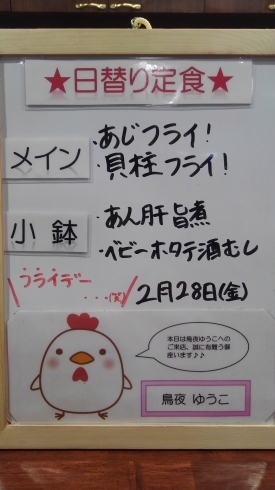 ★日替り定食★
メイン
・あじフライ!
・貝柱フライ!
小鉢
・あん肝旨煮
・ベビーホタテ酒むし
\フライデー
...(笑)/
2月28日(金)
本日は鳥夜ゆうこへの
ご来店、誠に有難う御
座います♪♪
鳥夜 ゆうこ